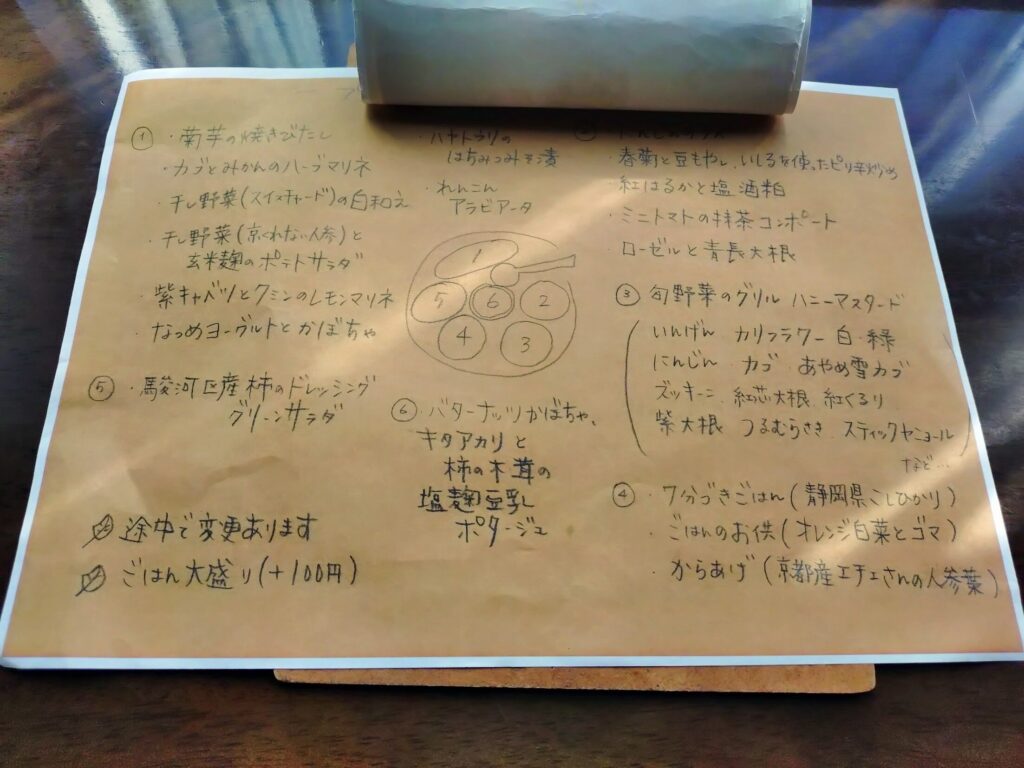 ① ・菊芋の焼きびたし
・カブとみかんのハーブマリネ
・干し野菜(スイスチャード)の白和え
・干し野菜(京くれない人参)と
玄米麹のポテトサラダ
・紫キャベツとクミンのレモンマリネ
・なつめヨーグルトとかぼちゃ
・ハヤトウリの
はちみつみそ漬
・れんこん
アラビアータ
1
2
3
4
5
6
・春菊と豆もやし、いしるを使ったピリ辛炒め
・紅はるかと塩酒粕
・ミニトマトの抹茶コンポート
・ローゼルと青長大根
③ 旬野菜のグリル ハニーマスタード
(いんげん カリフラワー白・緑
にんじん カブ あやめ雪カブ
ズッキーニ 紅芯大根 紅くるり
紫大根 つるむらさき スティックセニョール)
など…
④ ・7分づきごはん(静岡県こしひかり)
・ごはんのお供(オレンジ白菜とゴマ)
・からあげ(京都産エチエさんの人参葉)
⑤ ・駿河区産柿のドレッシング
グリーンサラダ
⑥ ・バターナッツかぼちゃ、
キタアカリと
柿の木茸の
塩麹豆乳
ポタージュ
途中で変更あります
ごはん大盛り(+100円)